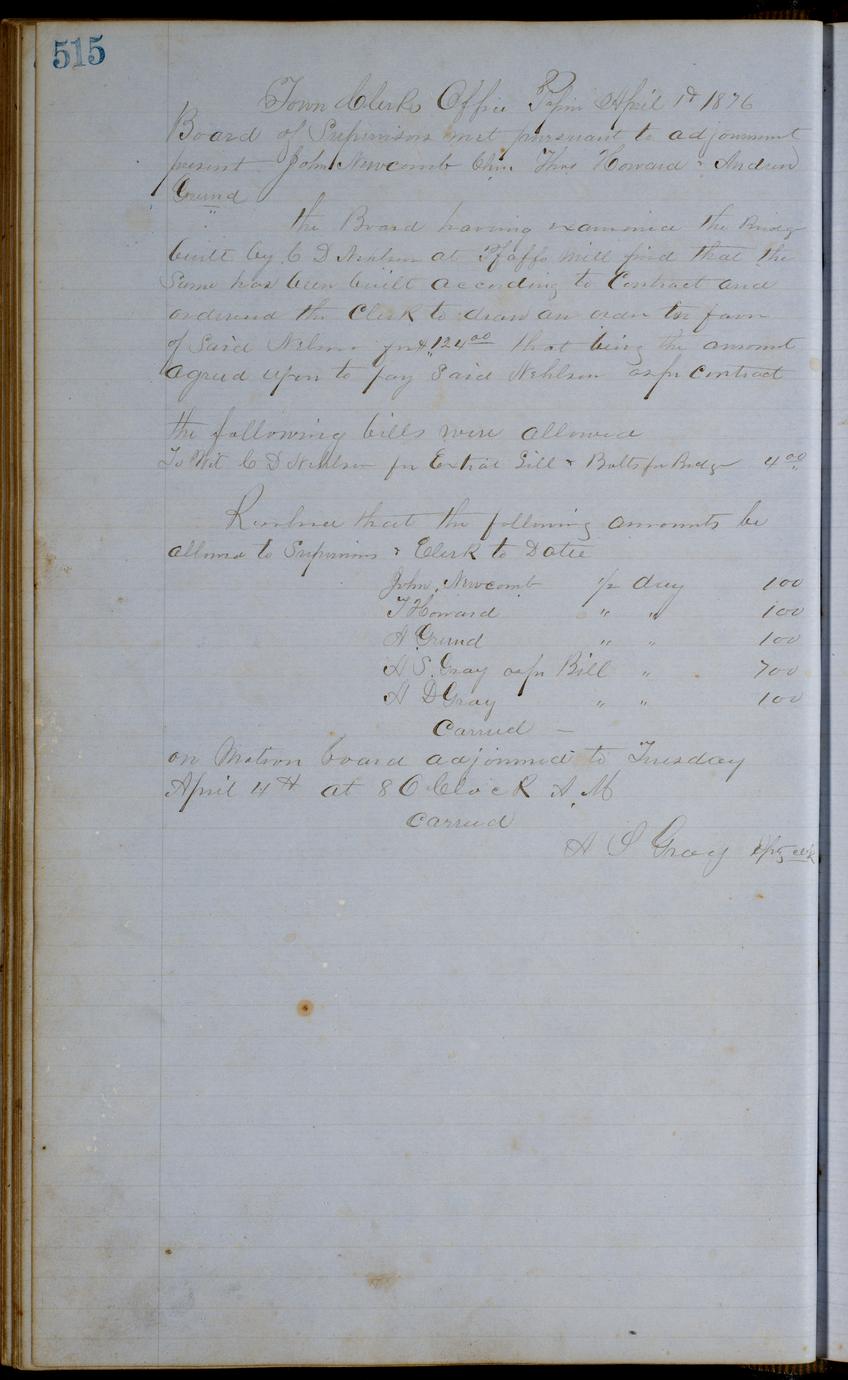 515
Town Clerks Office Pepin April 1st 1876
Board of Supervisors met pursuant to adjournment
present John Newcomb Chn. Thos Howard & Andrew
Grund
the Board having examined the Bridge
built by C D Nehlson at Pfaffs Mill find that the
Same has been built according to Contract and
ordered the Clerk to draw an order in favor
of Said Nelson for $124.00 that being the amount
agreed upon to pay Said Nehlson as per Contract
the following bills were allowed
To Wit C D Nehlson for Extra Sill & Bolts for Bridge 4.00
Resolved that the following amounts be
allowed to Supervisors & Clerk to Date
John Newcomb 1/2 day 100
T Howard " " 100
A Grund " " 100
A S. Gray as per Bill " 700
A D Gray " " 100
Carried —
on Motion board adjourned to Tuesday
April 4th at 8 O Clock A. M
Carried
A S Gray Dpty clk